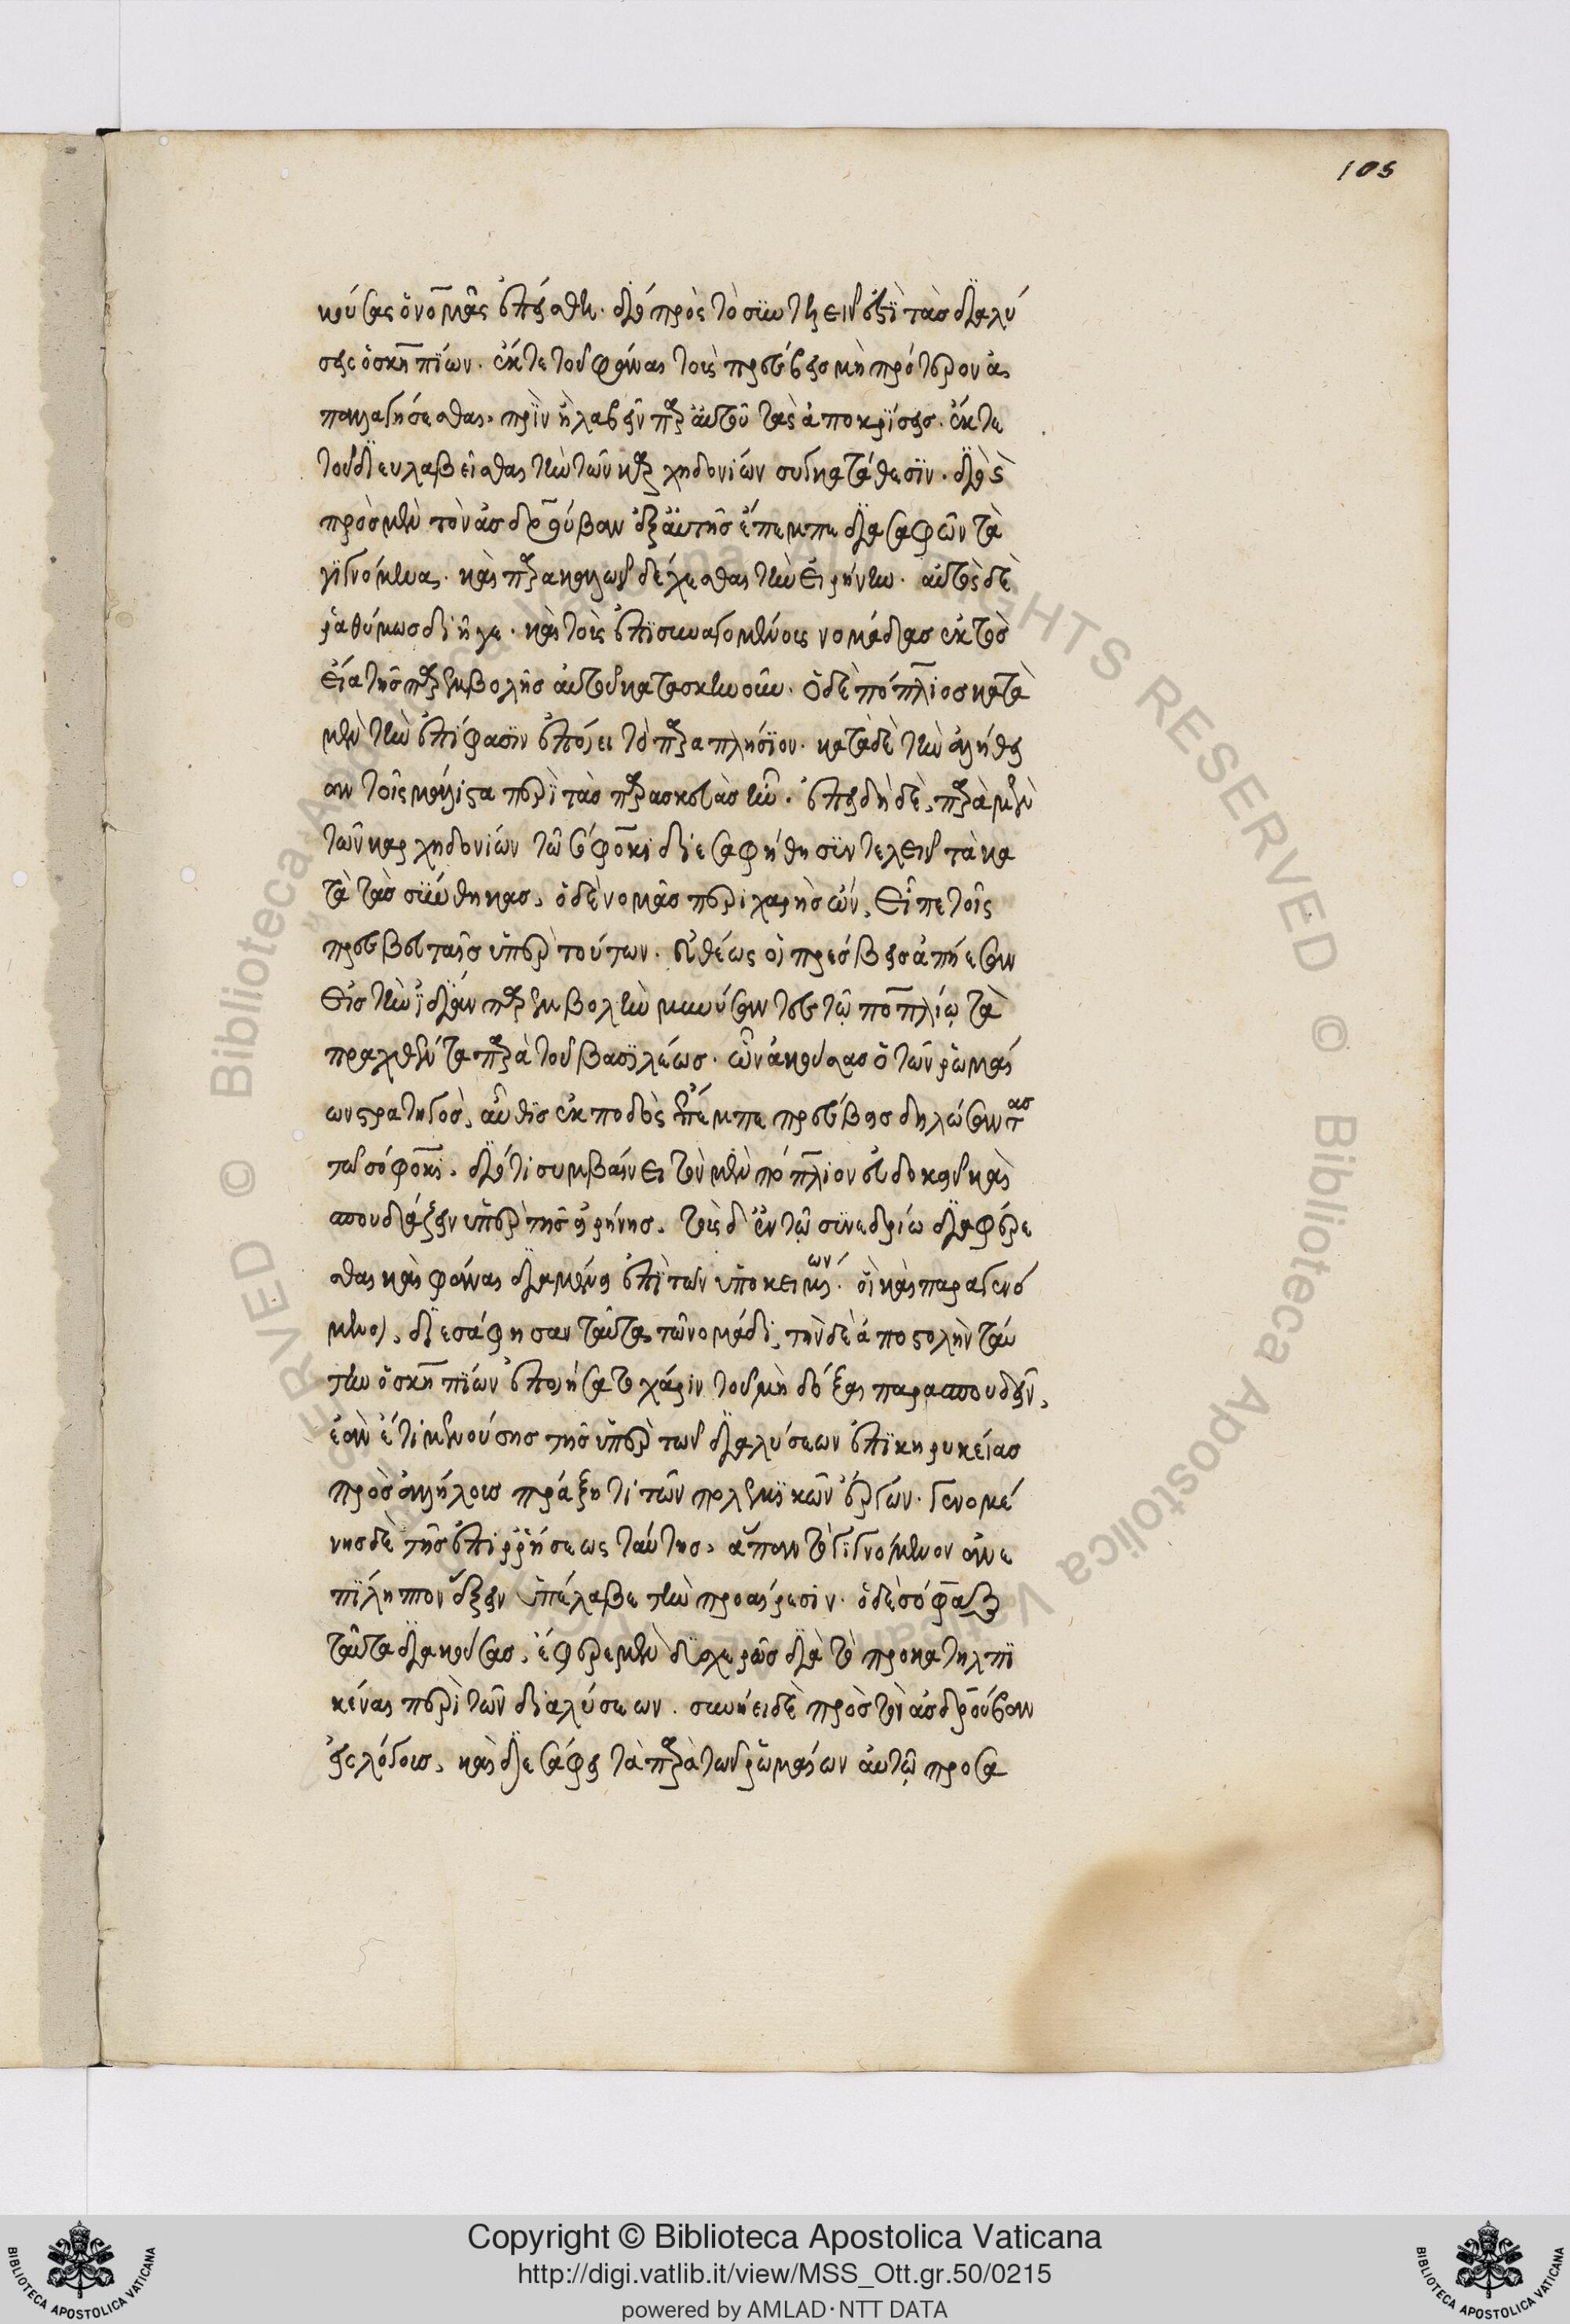 105
κούσας ὁ νομὰς ἐπείσθη. διὸ πρὸς τὸ συντηρεῖν ἔξει τὰς διαλύ
σεις ὁ σκηπίων. ἔκ τε τοῦ φάναι τοῖς πρεσβεσι μὴ πρότερον ἀ
παλλαγήσεσθαι. πρὶν ἢ λαβεῖν παρ αὐτοῦ τὰς ἀποκρίσεις. ἔκ τε
τοῦ διευλαβεῖσθαι τὴν τῶν καρχηδονίων συγκατάθεσιν. διὸ
πρὸς μὲν τὸν ἀσδρούβαν ἐξ αὐτῆς ἔπεμπε διασαφῶν τὰ
γιγνόμενα. καὶ παρακαλῶν δέχεσθαι τὴν εἰρήνην. αὐτὸς δὲ
ῥαθύμως διῆγε. καὶ τοῖς ἐπισυναγομένοις νομάδας ἐκτὸς
εἴα τῆς παρεμβολῆς αὐτοῦ κατασκηνοῦν. ὁ δὲ πόπλιος κατὰ
μὲν τὴν ἐπίφασιν ἐποίει τὸ παραπλήσιον. κατὰ δὲ τὴν ἀλήθει
αν τοῖς μάλιστα περὶ τὰς παρασκευὰς ἦν. ἐπειδὴ δὲ, παρὰ μὲν
τῶν καρχηδονίων τῷ σόφακι διεσαφήθη συντελεῖν τὰ κα
τὰ τὰς συνθήκας, ὁ δὲ νομὰς περιχαρὴς ὢν, εἶπε τοῖς
πρεσβευταῖς ὑπὲρ τούτων. εὐθέως οἱ πρέσβεις ἀπήεσαν
εἰς τὴν ἰδίαν παρεμβολὴν μηνύσαντες τῷ ποπλίῳ τὰ
πραχθέντα παρὰ τοῦ βασιλέως. ὧν ἀκούσας ὁ τῶν ῥωμαί
ων στρατηγὸς, αὖθις ἐκ ποδὸς ἔπεμπε πρέσβεις δηλώσαντας
τῷ σόφακι. διότι συμβαίνει τὸν μὲν πόπλιον εὐδοκεῖν καὶ
σπουδάζειν ὑπὲρ τῆς εἰρήνης. τοὺς δ ἐν τῷ συνεδρίω διαφέρε
σθαι καὶ φάναι διαμένειν ἐπὶ τῶν ὑποκειμένων. οἳ καὶ παραγενό
μενοι, διεσάφησαν ταῦτα τῷ νομάδι. τὴν δὲ ἀποστολὴν ταύ
την ὁ σκηπίων ἐποιήσατο χάριν τοῦ μὴ δόξαι παρασπονδεῖν,
ἐὰν ἔτι μενούσης τῆς ὑπὲρ τῶν διαλύσεων ἐπικηρυκείας
πρὸς ἀλλήλους πράξῃ τι τῶν πολεμικῶν ἔργων. γενομέ
νης δὲ τῆς ἐπιρρήσεως ταύτης, ἅπαν τὸ γιγνόμενον ἀνε
πίληπτον ἕξειν ὑπέλαβε τὴν προαίρεσιν. ὁ δὲ σόφαξ
ταῦτα διακούσας, ἔφερε μὲν δυσχερῶς διὰ τὸ προκατηλπι
κέναι περὶ τῶν διαλύσεων. συνήει δὲ πρὸς τὸν ἀσδρούβαν
εἰς λόγους, καὶ διεσάφει τὰ παρὰ τῶν ῥωμαίων αὐτῷ προσα
Copyright © Biblioteca Apostolica Vaticana
http://digi.vatlib.it/view/MSS_Ott.gr.50/0215
powered by AMLAD·NTT DATA